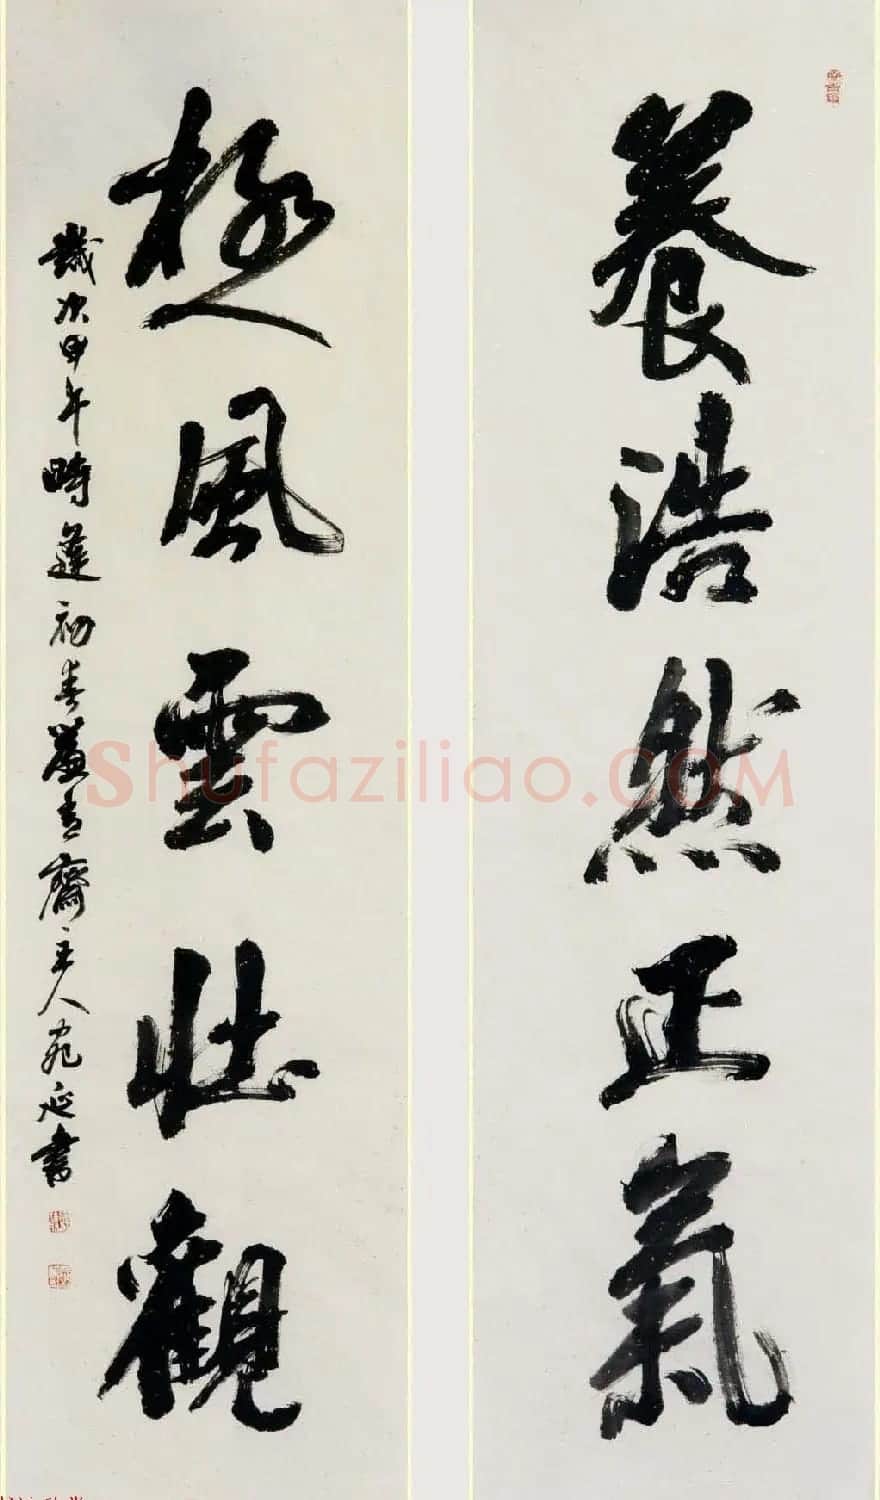 養浩然正氣
極風雲壯觀
歲次甲午時逢初春蘆青齋主人宛延書
Shufaziliao.COM